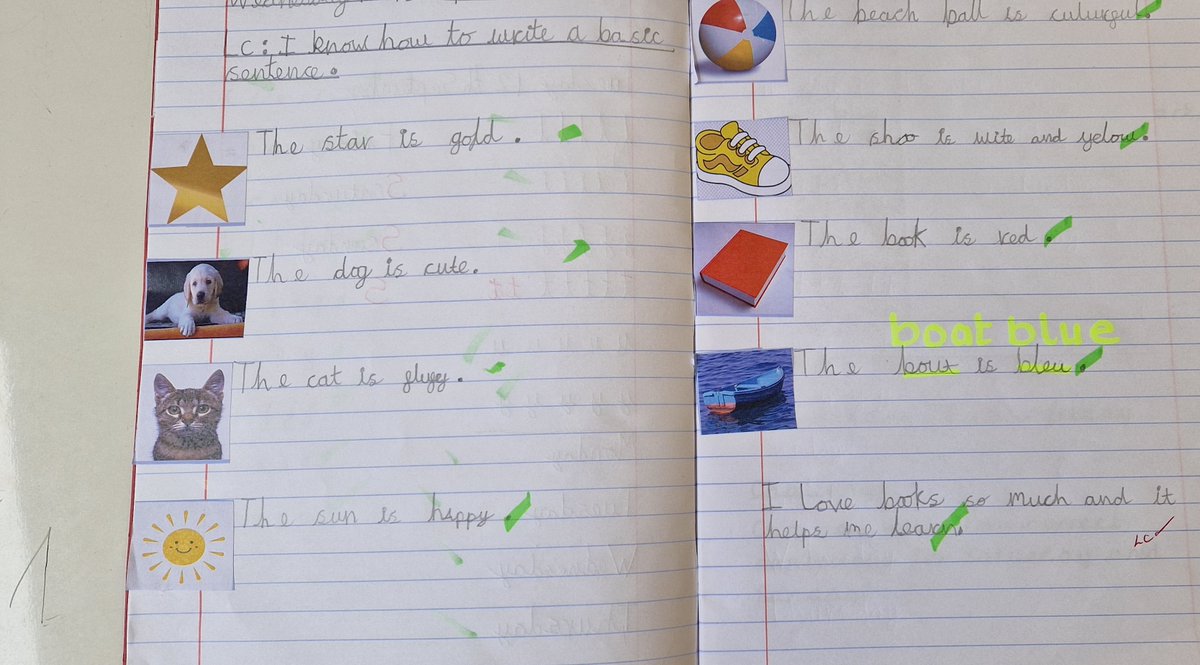 LC: I know how to write a basic
sentence.
The star is gold.
The dog is cute.
The cat is fluyy.
The sun is happy
The beach ball is
The shoo is wite and yelow.
The book is red.
boat blue
The bout is bleu.
I Love books so much and it
helps me learn.
LC